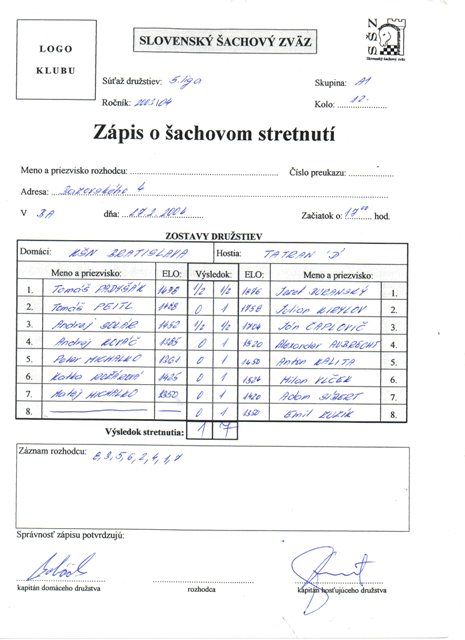 LOGO
KLUBU
SLOVENSKÝ ŠACHOVÝ ZVÄZ
SŠZ
Slovenský šachový zväz
Súťaž družstiev: 5. liga
Skupina: A1
Ročník: 2003/04
Kolo: 10.
Zápis o šachovom stretnutí
Meno a priezvisko rozhodcu:
Číslo preukazu:
Adresa: 4
V BA dňa: 27.2.2004 Začiatok o: 17⁰⁰ hod.
ZOSTAVY DRUŽSTIEV
Domáci: KŠN BRATISLAVA Hostia: TATRAN 'D'
Meno a priezvisko: ELO: Výsledok: ELO: Meno a priezvisko:
1. Tomáš 1/2 1/2 Jozef 1.
2. Tomáš PEITL 0 1 1758 Julian KIRYLOV 2.
3. Andrej 1/2 1/2 1704 Ján ČAPLOVIČ 3.
4. Andrej KOVÁČ 0 1 1520 Alexander AUBRECHT 4.
5. Peter MICHALKO 1261 0 1 1450 Anton KALITA 5.
6. Katka 0 1 Milan VLČEK 6.
7. Matej MICHALKO 1250 0 1 1420 Adam 7.
8. 0 1 Emil 8.
Výsledok stretnutia: 1 7
Záznam rozhodcu: 8, 3, 5, 6, 2, 4, 1, 7
Správnosť zápisu potvrdzujú:
kapitán domáceho družstva rozhodca kapitán hosťujúceho družstva